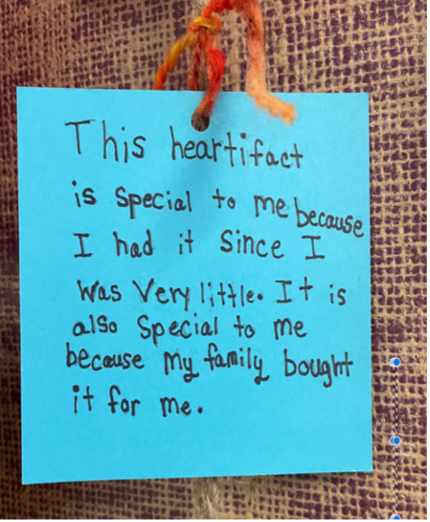 This heartifact
is special to me because
I had it Since I
was Very little. It is
also Special to me
because my family bought
it for me.